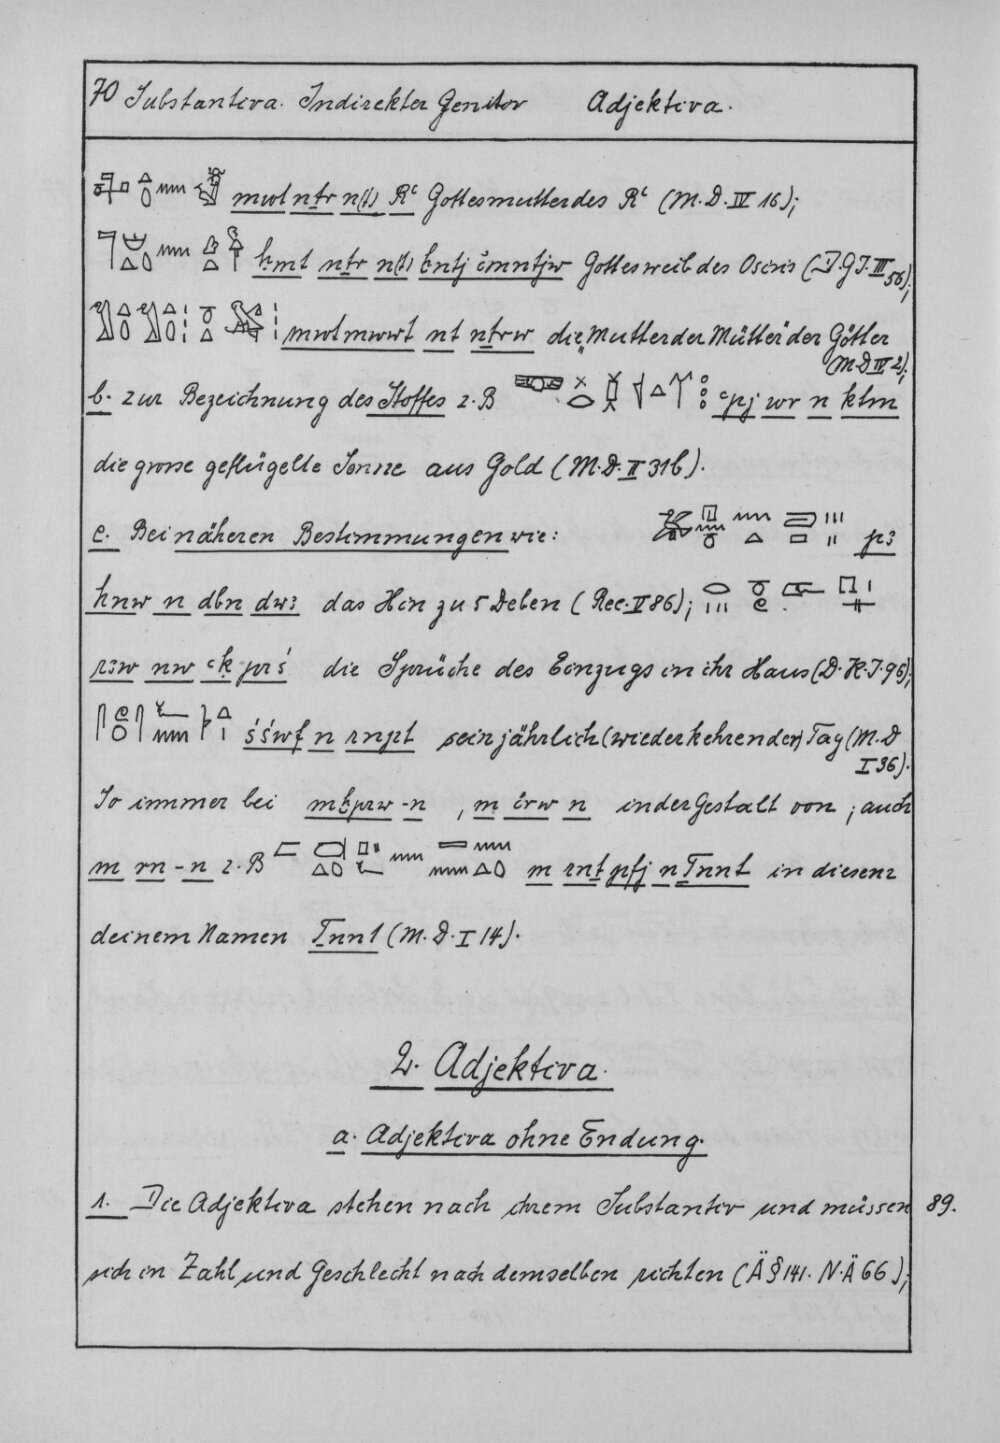 70 Substantiva. Indirekter Genitiv Adjektiva.
mwt nṯr n(t) Rꜥ Gottesmutter des Rꜥ (M.D. IV 16);
ḥmt nṯr n(t) ḫntj ỉmntjw Gottesweib des Osiris (D.G.I. III 56);
mwt mwwt nt nṯrw die „Mutter der Mütter" der Götter
(M.D IV 2);
b. zur Bezeichnung des Stoffes z.B ꜥpj wr n ktm
die grosse geflügelte Sonne aus Gold (M.D. II 31b).
c. Bei näheren Bestimmungen wie: pꜣ
hnw n dbn dwꜣ das Hin zu 5 Deben (Rec. V 86);
rꜣw nw ꜥḳ pr ś die Sprüche des Einzugs in ihr Haus (D.H.I. 96);
śśwf n rnpt sein jährlich (wiederkehrender) Tag (M.D
I 36).
So immer bei m ḫprw - n , m ỉrw n in der Gestalt von ; auch
m rn - n z.B m rnṯ pfj n Ṯnnt in diesem
deinem Namen Ṯnnt (M.D. I 14).
2. Adjektiva.
a. Adjektiva ohne Endung.
1. Die Adjektiva stehen nach ihrem Substantiv und müssen 89.
sich in Zahl und Geschlecht nach demselben richten (Ä § 141. N.Ä 66);